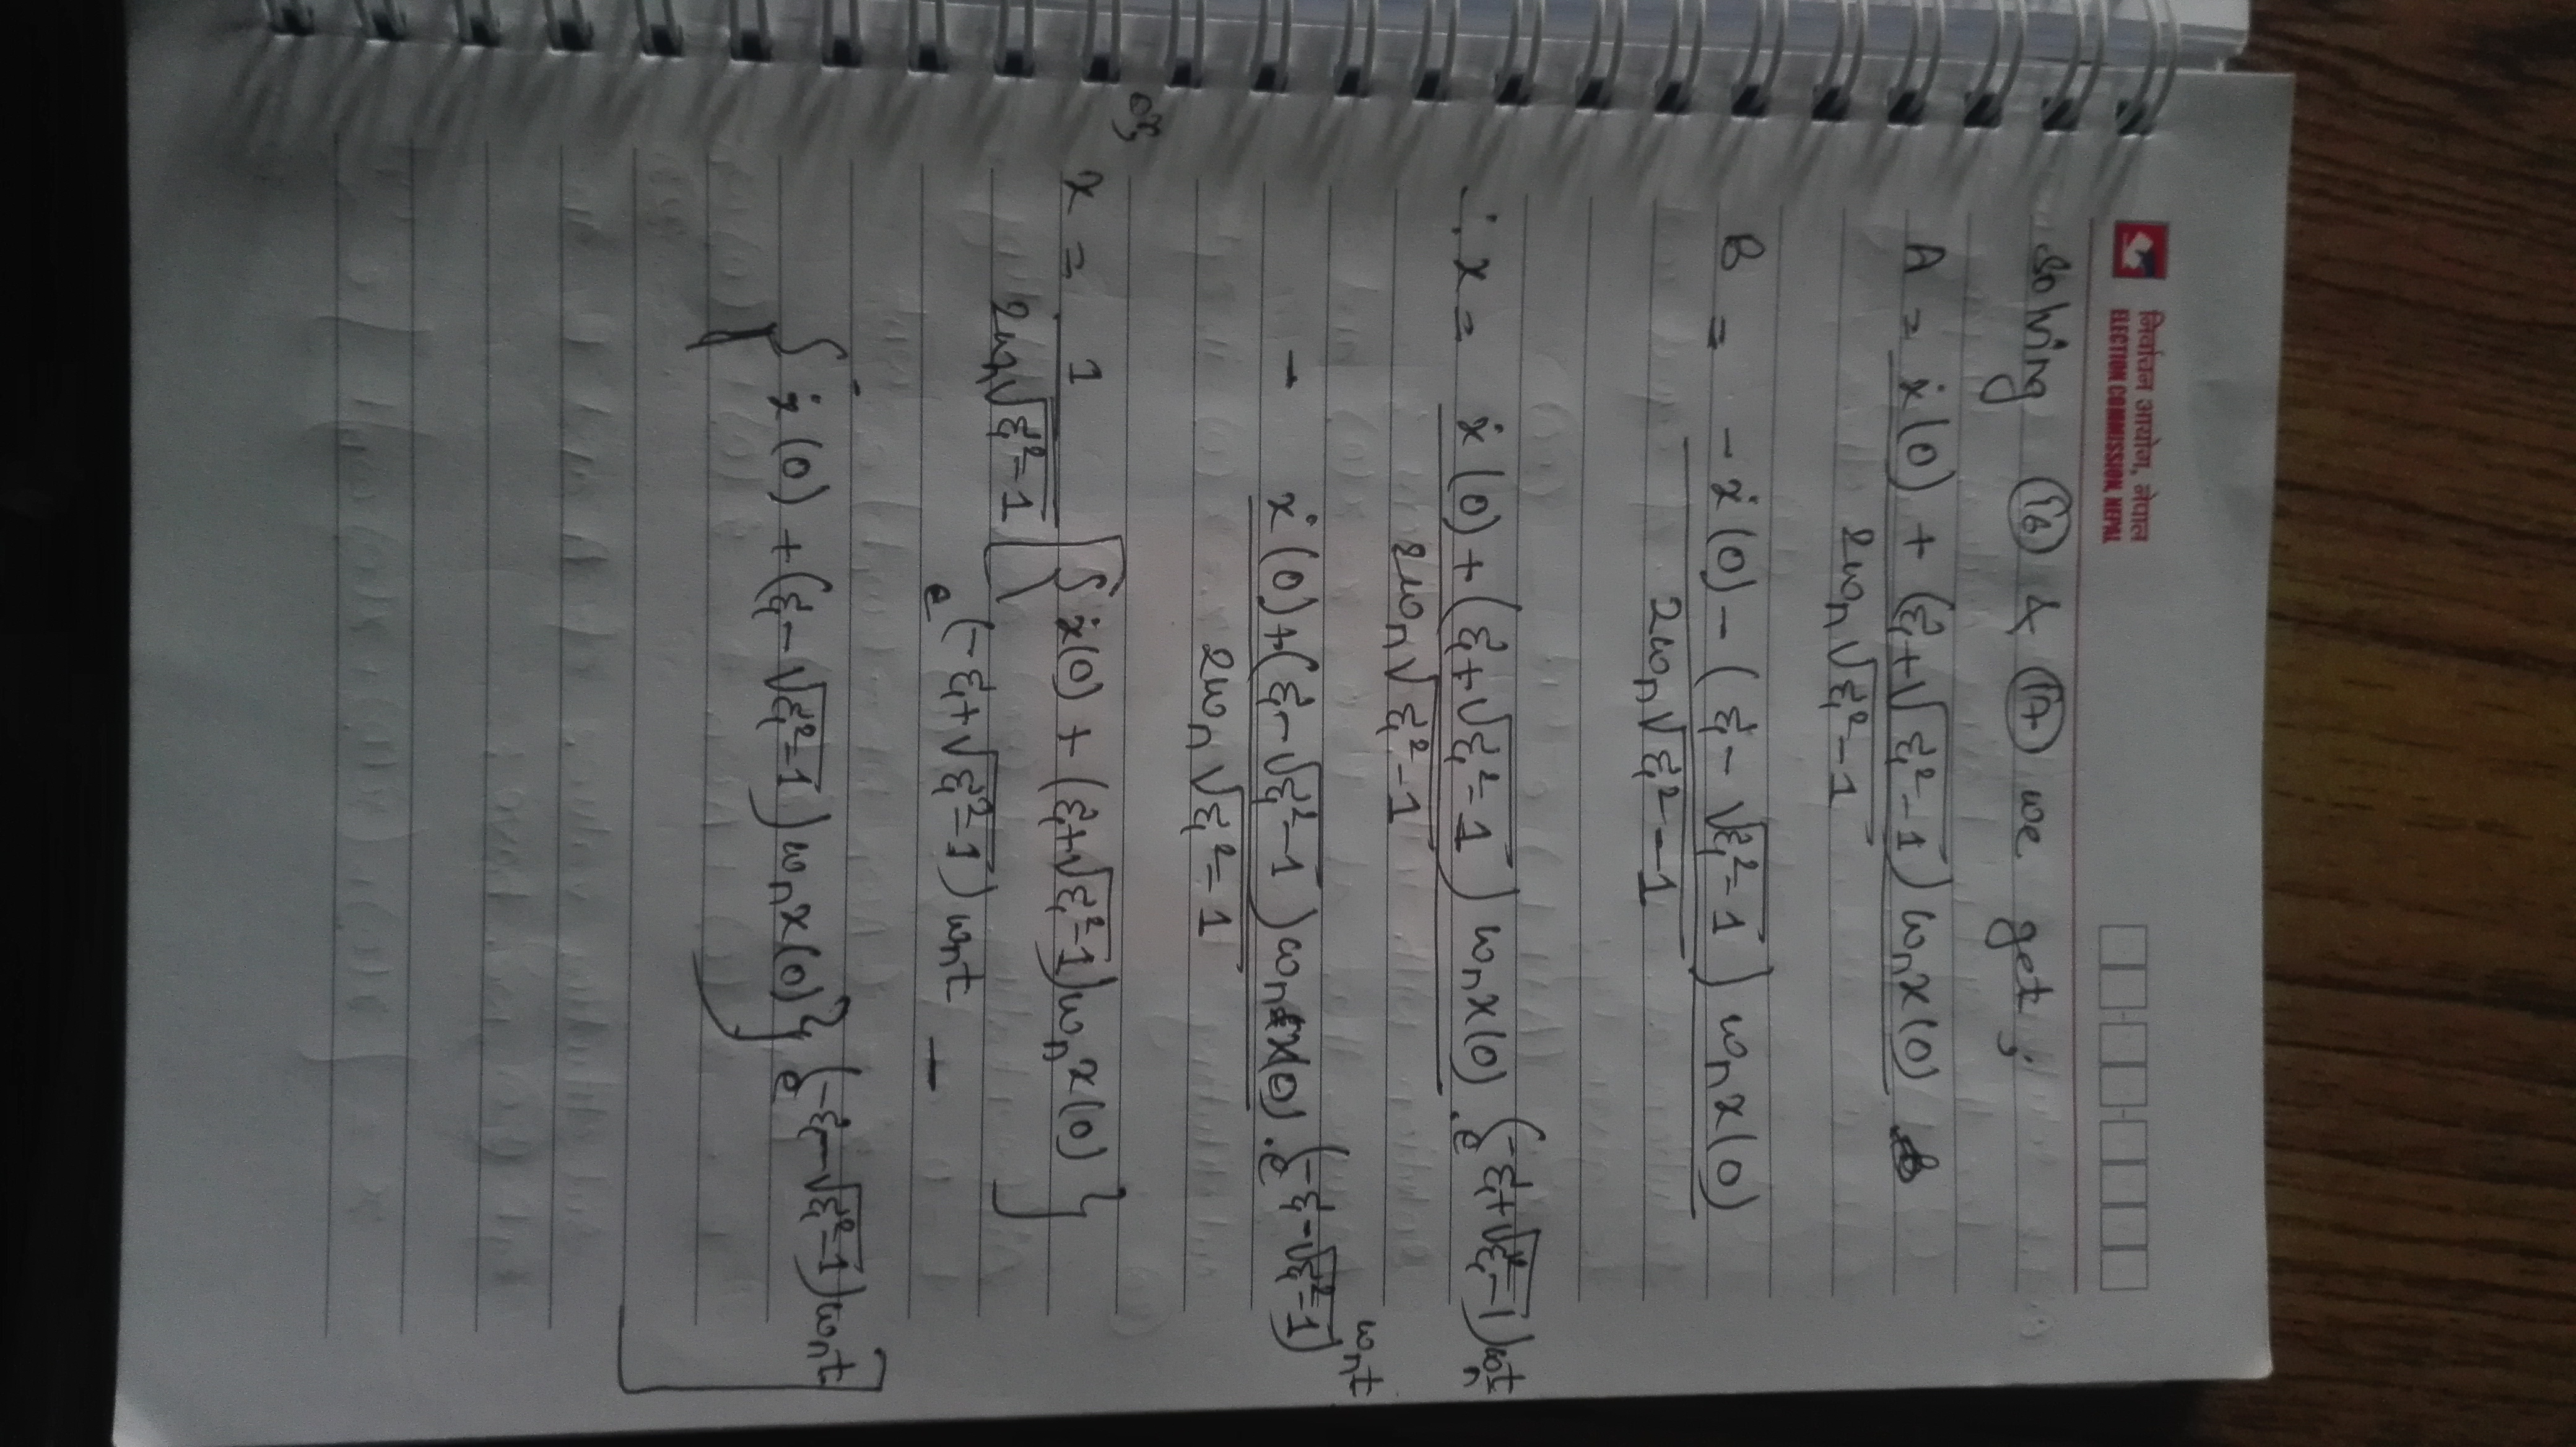 निर्वाचन आयोग, नेपाल
ELECTION COMMISSION, NEPAL
Solving (16) & (17) we get,
A = ẋ(0) + (ξ+√ξ²-1) ωn x(0)
2ωn√ξ²-1
B = -ẋ(0) - (ξ-√ξ²-1) ωn x(0)
2ωn√ξ²-1
∴ x = ẋ(0) + (ξ+√ξ²-1) ωn x(0) . e^(-ξ+√ξ²-1)ωnt
2ωn√ξ²-1
- ẋ(0) + (ξ-√ξ²-1) ωn x(0) . e^(-ξ-√ξ²-1) ωnt
2ωn√ξ²-1
or,
x = 1 [ { ẋ(0) + (ξ+√ξ²-1) ωn x(0) }
2ωn√ξ²-1
e^(-ξ+√ξ²-1) ωnt -
{ ẋ(0) + (ξ-√ξ²-1) ωn x(0) } e^(-ξ-√ξ²-1)ωnt ]